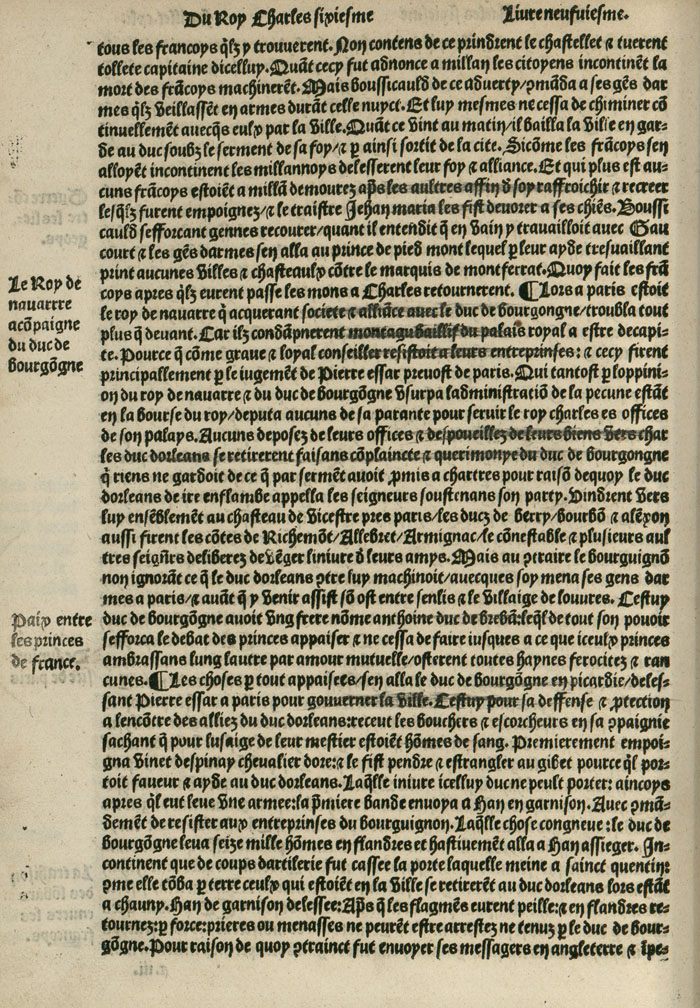 Du Roy Charles sixiesme
Liure neufuiesme.
tous les francoys q̃lz y trouuerent. Non contens de ce prindrent le chastellet ⁊ tuerent
tollete capitaine dicelluy. Quãt cecy fut adnonce a millan les citoyens incontinẽt la
mort des frãcoys machinerẽt. Mais boussicauld de ce aduerty/ ꝯmãda a ses gẽs dar
mes q̃lz veillassẽt en armes durãt celle nuyct. Et luy mesmes ne cessa de chiminer cõ
tinuellemẽt auecq̃s eulx par la ville. Quãt ce vint au matin/ il bailla la ville en gar-
de au duc soubz le serment de sa foy/ ⁊ ꝑ ainsi sortit de la cite. Sicõme les frãcoys sen
alloyẽt incontinent les millannoys delesserent leur foy ⁊ alliance. Et qui plus est au-
cuns frãcoys estoiẽt a millã demourez ap̃s les aultres affin d̃ soy raffroichir ⁊ recreer
lesq̃lz furent empoignez/ ⁊ le traistre Jehan maria les fist deuorer a ses chiẽs. Boussi
cauld sefforcant gennes recourer/ quant il entendit q̃ en vain y trauailloit auec Gau
court ⁊ les gẽs darmes sen alla au prince de pied mont lequel ꝑ leur ayde tresuaillant
print aucunes villes ⁊ chasteaulx cõtre le marquis de montferrat. Quoy fait les frã
coys apres q̃lz eurent passe les mons a Charles retournerent. ¶Lors a paris estoit
le roy de nauarre q̃ acquerant societe ⁊ alliance auec le duc de bourgongne/ troubla tout
plus q̃ deuant. Car ilz condãpnerent montagu baillif du palais royal a estre decapi-
te. Pource q̃ cõme graue ⁊ loyal conseiller resistoit a leurs entreprinses: ⁊ cecy firent
principallement ꝑ le iugemẽt de Pierre essar preuost de paris. Qui tantost ꝑ loppini-
on du roy de nauarre ⁊ du duc de bourgõgne vsurpa ladministratiõ de la pecune estãt
en la bourse du roy/ deputa aucuns de sa parante pour seruir le roy charles es offices
de son palays. Aucuns deposez de leurs offices ⁊ despoueillez de leurs biens vers char
les duc dorleans se retirerent faisans cõplaincte ⁊ querimonye du duc de bourgongne
q̃ riens ne gardoit de ce q̃ par sermẽt auoit ꝓmis a chartres pour raisõ dequoy le duc
dorleans de ire enflambe appella les seigneurs soustenans son party. Vindrent vers
luy ensẽblemẽt au chasteau de vicestre pres paris/ les ducz de berry/ bourbõ ⁊ alẽxon
aussi firent les cõtes de Richemõt/ Allebret/ Armignac/ le cõnestable ⁊ plusieurs aul
tres seigñrs deliberez de vẽger liniure d̃ leurs amys. Mais au ꝯtraire le bourguignõ
non ignorãt ce q̃ le duc dorleans ꝯtre luy machinoit/ auecques soy mena ses gens dar
mes a paris/ ⁊ auãt q̃ y venir assist sõ ost entre senlis ⁊ le villaige de louures. Cestuy
duc de bourgõgne auoit vng frere nõme anthoine duc de brebã: leq̃l de tout son pouoir
sefforca le debat des princes appaiser ⁊ ne cessa de faire iusques a ce que iceulx princes
ambrassans lung lautre par amour mutuelle/ osterent toutes haynes ferocitez ⁊ ran
cunes. ¶Les choses ꝑ tout appaisees/ sen alla le duc de bourgõgne en picardie/ deles-
sant Pierre essar a paris pour gouuerner la ville. Cestuy pour sa deffense ⁊ ꝓtection
a lencõtre des alliez du duc dorleans: receut les bouchers ⁊ escorcheurs en sa ꝯpaignie
sachant q̃ pour lusaige de leur mestier estoiẽt hõmes de sang. Premierement empoi-
gna vinet despinay cheualier dore: ⁊ le fist pendre ⁊ estrangler au gibet pource q̃l por-
toit faueur ⁊ ayde au duc dorleans. Laq̃lle iniure icelluy duc ne peult porter: aincoys
apres q̃l eut leue vne armee: la p̃miere bande enuoya a Han en garnison. Auec ꝯmã-
demẽt de resister aux entreprinses du bourguignon. Laq̃lle chose congneue: le duc de
bourgõgne leua seize mille hõmes en flandres et hastiuemẽt alla a Han assieger. In-
continent que de coups dartilerie fut cassee la porte laquelle meine a sainct quentin:
ꝯme elle tõba ꝑ terre ceulx qui estoiẽt en la ville se retirerẽt au duc dorleans lors estãt
a chauny. Han de garnison delessee: Ap̃s q̃ les flagmẽs eurent peille: ⁊ en flandres re-
tournez: ꝑ force: prieres ou menasses ne peurẽt estre arrestez ne tenuz ꝑ le duc de bour-
gõgne. Pour raison de quoy ꝯtrainct fut enuoyer ses messagers en angleterre ⁊ ĩpe-
Le Roy de
nauarrre
acõpaigne
du duc de
bourgõgne
Paix entre
les princes
de france.